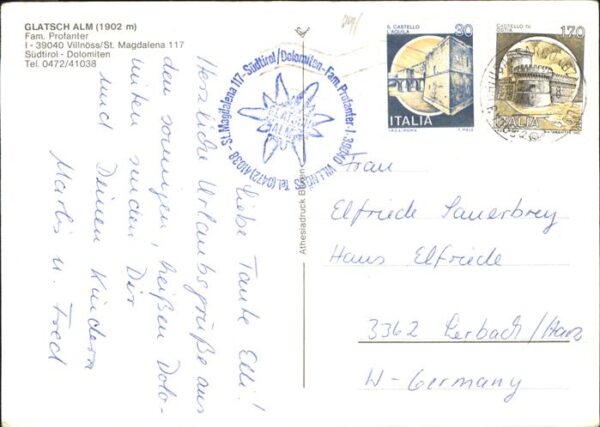 GLATSCH ALM (1902 m)
Fam. Profanter
I - 39040 Villnöss/St. Magdalena 117
Südtirol - Dolomiten
Tel. 0472/41038
Liebe Tante Elli!
Herzliche Urlaubsgrüße aus
den sonnigen, heißen Dolo-
miten senden Dir
und Deinen Kindern
Marlis u. Fred
St. Magdalena 117-Südtirol/Dolomiten-Fam. Profanter-I-39040 VILLNÖSS Tel. (0472) 41038
GLATSCH
ALM
Athesiadruck Bozen
IL CASTELLO
L'AQUILA
30
ITALIA
CASTELLO DI
OSTIA
170
ITALIA
Frau
Elfriede Sauerbrey
Haus Elfriede
3362 Lerbach/Harz
W-Germany